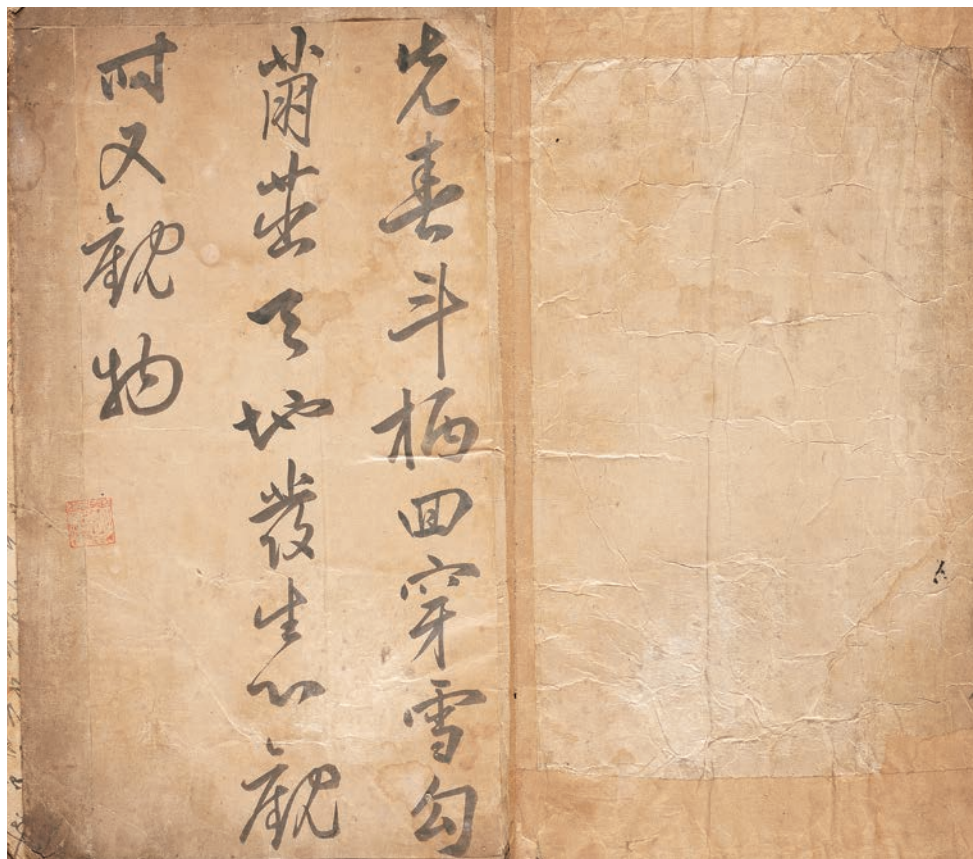 先春斗柄回穿雪勾
萠茁天地發生心觀
时又觀物